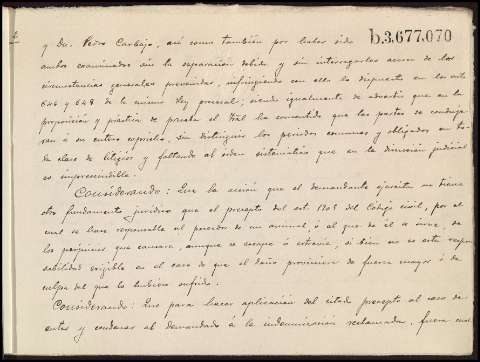 2
b.3.677.070
y Dn. Pedro Carbajo, así como también por haber sido
ambos examinados sin la separación debida y sin interrogarles acerca de las
circunstancias generales prevenidas, infringiendo con ello lo dispuesto en los arts.
646 y 648 de la misma ley procesal; siendo igualmente de advertir que en la
proposición y práctica de prueba el Tribl ha consentido que las partes se conduje-
ran á su entero capricho, sin distinguir los periodos comunes y obligados en to-
da clase de litigios y faltando al orden sistemático que en la dirección judicial
es imprescindible.
Considerando: Que la acción que el demandante ejercita no tiene
otro fundamento jurídico que el precepto del art. 1905 del Código civil, por el
cual se hace responsable al poseedor de un animal, ó al que de él se sirve, de
los perjuicios que causare, aunque se escape ó extravíe, si bien no es esta respon-
sabilidad exigible en el caso de que el daño proviniera de fuerza mayor ó de
culpa del que lo hubiere sufrido.
Considerando: Que para hacer aplicación del citado precepto al caso de
autos y condenar al demandado á la indemnización reclamada, fuera nece